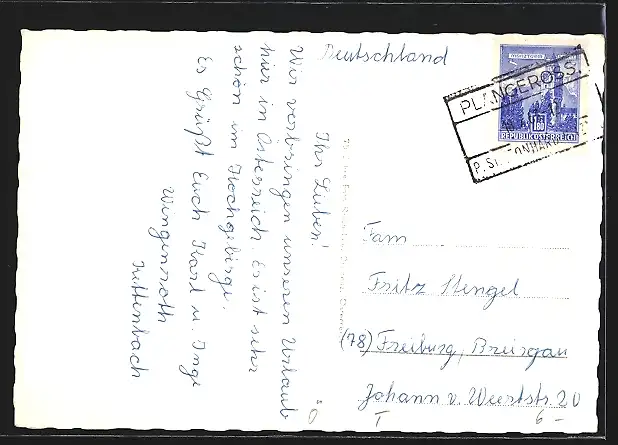 Deutschland
PLANGEROSS
REPUBLIK ÖSTERREICH
Ihr Lieben!
Wir verbringen unseren Urlaub
hier in Österreich. Es ist sehr
schön im Hochgebirge.
Es Grüßt Euch Karl u. Inge
Wingenroth
Kettenbach
Fam
Fritz Stengel
(78) Freiburg, Breisgau
Johann v. Weertstr. 20
I
6 -